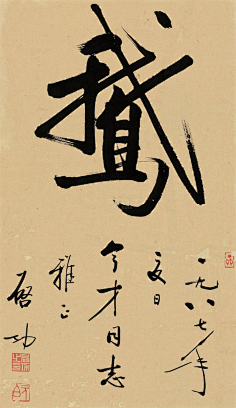 鵞
一九八七年
夏日
今才同志
雅正
啓功